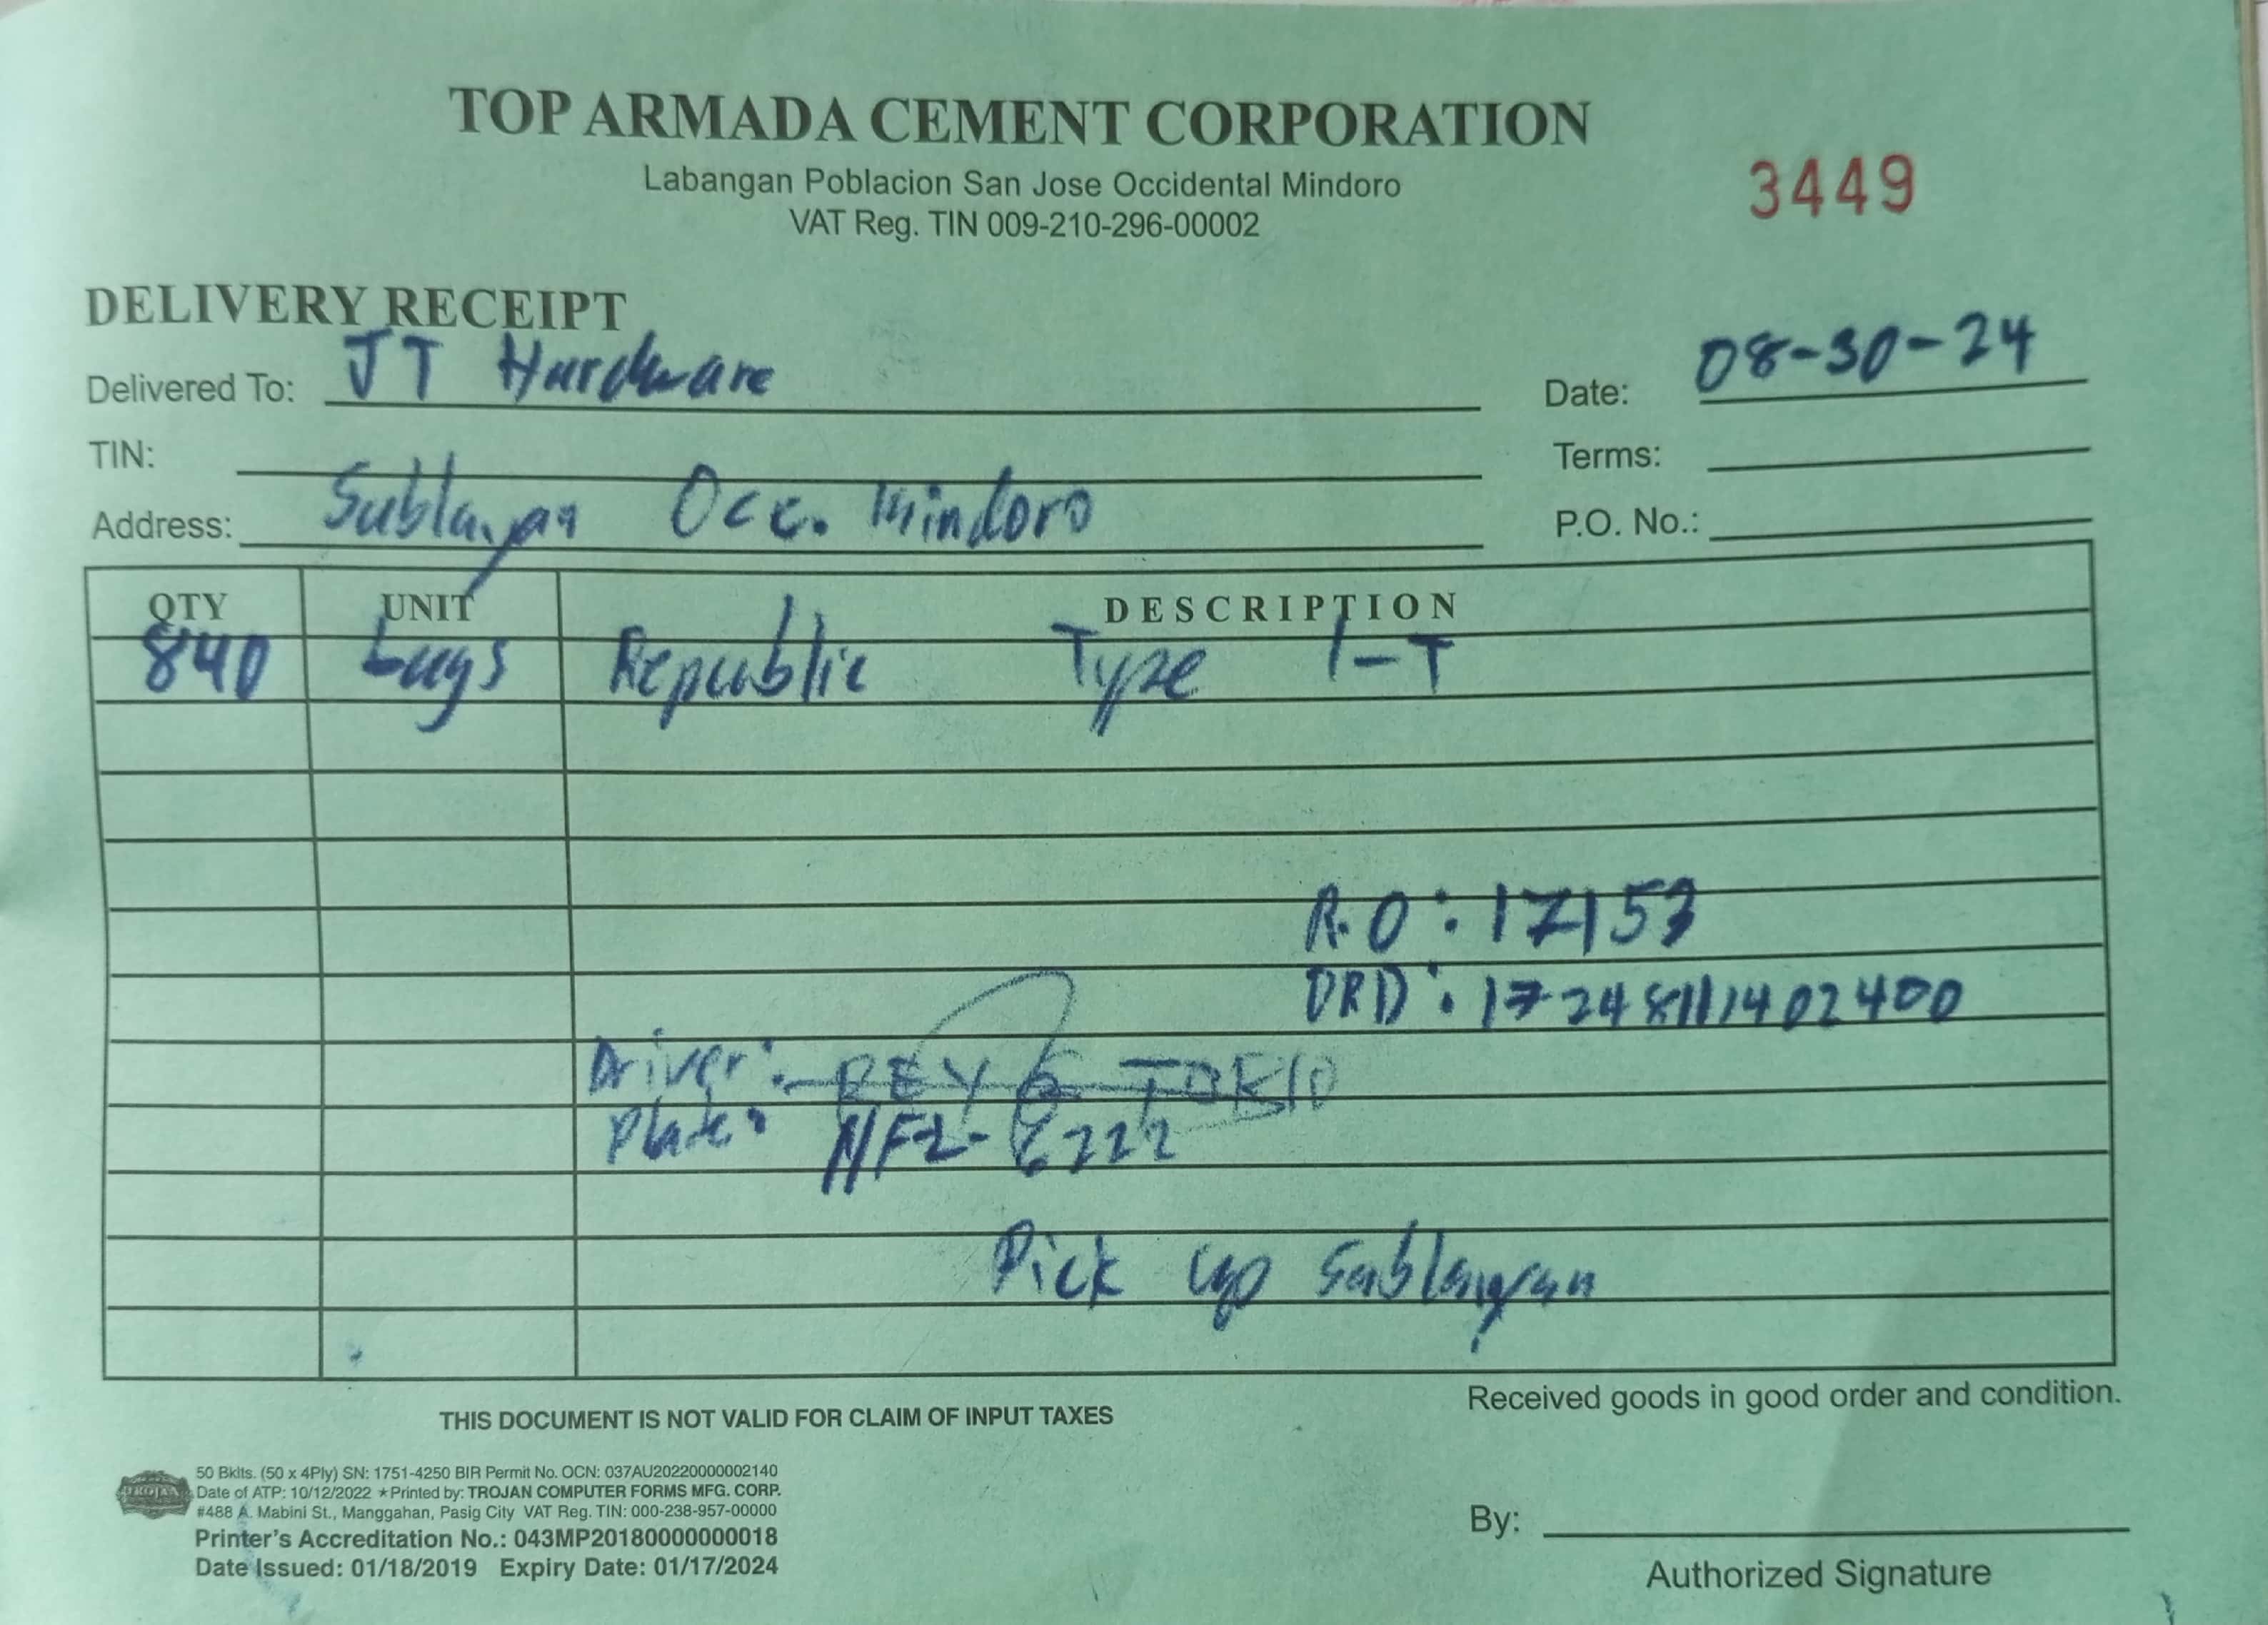 TOP ARMADA CEMENT CORPORATION
Labangan Poblacion San Jose Occidental Mindoro
VAT Reg. TIN 009-210-296-00002
3449
DELIVERY RECEIPT
Delivered To: JT Hardware
Date: 08-30-24
TIN:
Terms:
Address: Sablayan Occ. Mindoro
P.O. No.:
QTY UNIT DESCRIPTION
840 bags Republic Type 1-T
R.O: 17153
DRD: 1724811402400
Driver: REY G TOKIO
Plate: NFZ-6222
Pick up Sablayan
THIS DOCUMENT IS NOT VALID FOR CLAIM OF INPUT TAXES
Received goods in good order and condition.
TROJAN
50 Bklts. (50 x 4Ply) SN: 1751-4250 BIR Permit No. OCN: 037AU20220000002140
Date of ATP: 10/12/2022 ★Printed by: TROJAN COMPUTER FORMS MFG. CORP.
#488 A. Mabini St., Manggahan, Pasig City VAT Reg. TIN: 000-238-957-00000
Printer's Accreditation No.: 043MP20180000000018
Date Issued: 01/18/2019 Expiry Date: 01/17/2024
By:
Authorized Signature